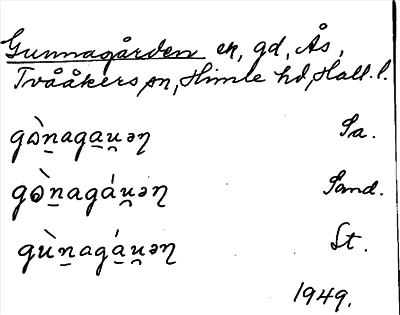 Gunnagården en, gd, Ås,
Tvååkers sn, Himle hd, Hall. l.
gɷ̀n̲aga̲u̯əɳ Sa.
gɷ̀n̲agáu̯əɳ Sand.
gùn̲agá̲u̯əɳ St.
1949.